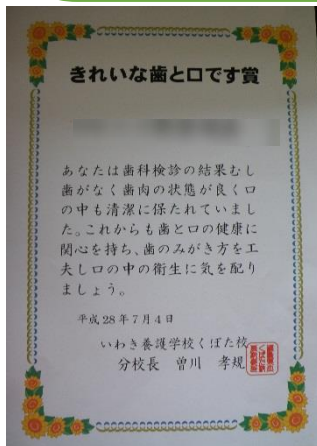 きれいな歯と口です賞
あなたは歯科検診の結果むし
歯がなく歯肉の状態が良く口
の中も清潔に保たれていまし
た。これからも歯と口の健康に
関心を持ち、歯のみがき方を工
夫し口の中の衛生に気を配り
ましょう。
平成28年7月4日
いわき養護学校くぼた校
分校長 曽川 孝規